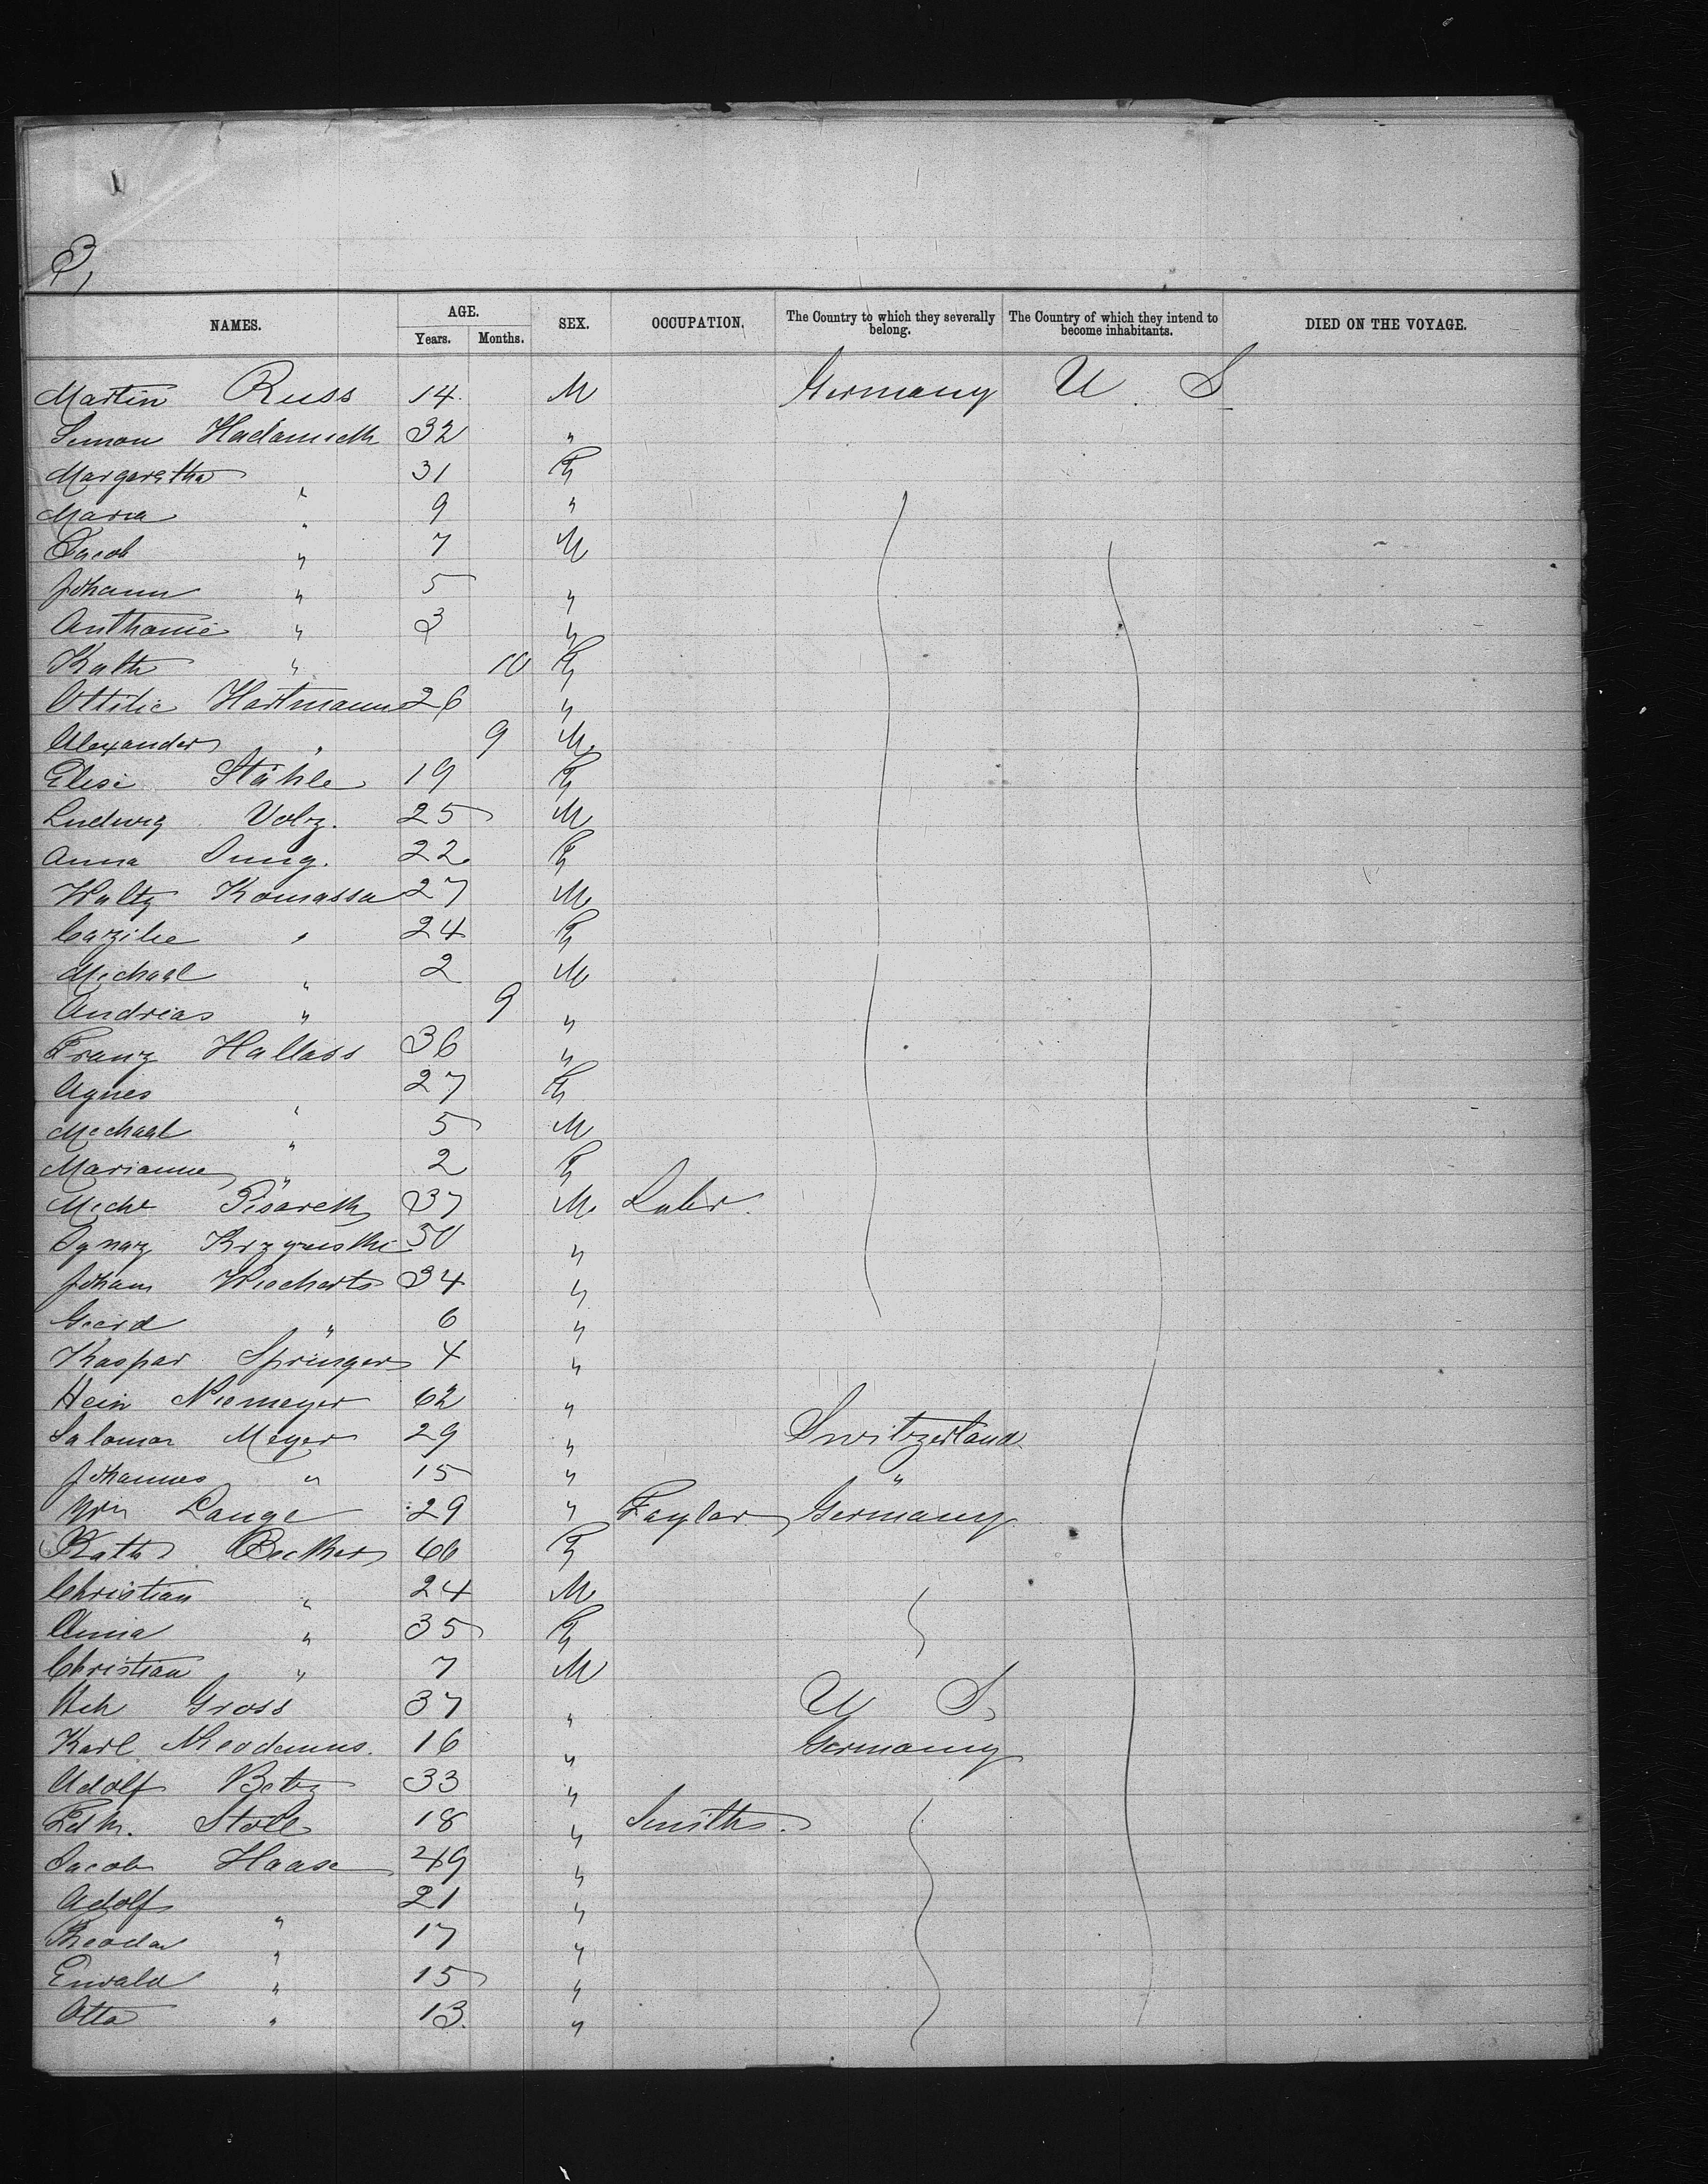 3,
NAMES. AGE. SEX. OCCUPATION. The Country to which they severally belong. The Country of which they intend to become inhabitants. DIED ON THE VOYAGE.
Years. Months.
Martin Russ 14 M Germany U. S
Simon Hadamietz 32 "
Margaretha " 31 F
Maria " 9 "
Jacob " 7 M
Johann " 5 "
Anthonie " 3 "
Kath " 10 F
Ottilie Hartmann 26 "
Alexander " 9 M
Elise Stähle 19 F
Ludwig Volz. 25 M
Anna Jung. 22 F
Komassa 27 M
" 24 F
Michael " 2 M
Andreas " 9 "
Franz Hallass 36 "
Agnes " 27 F
Michael " 5 M
Marianne " 2 F
Pisareth 37 M Labr.
Ignaz 50 "
Johann Wiecherts 34 "
Geerd " 6 "
Kaspar Springer 4 "
Hein Niemeyer 62 "
Salomon Meyer 29 " Switzerland
Johannes " 15 " "
Wm Lange 29 " Taylor Germany
Kath Becker 66 F
Christian " 24 M
Anna " 35 F
Christian " 7 M
Hch Gross 37 " U S
Karl 16 " Germany
Adolf Betz 33 "
Edm. Stoll 18 " Smith.
Jacob Haase 49 "
Adolf " 21 "
Theodor " 17 "
Ewald " 15 "
Otto " 13. "